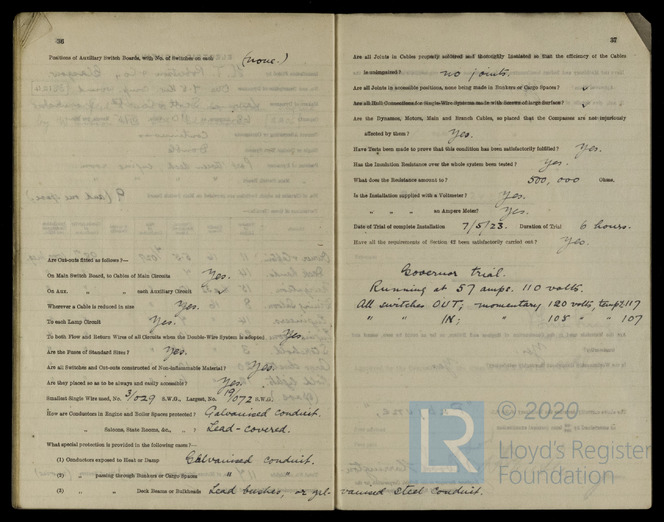 36
Positions of Auxiliary Switch Boards, with No. of Switches on each (none.)
Are Cut-outs fitted as follows?—
On Main Switch Board, to Cables of Main Circuits Yes.
On Aux. " " each Auxiliary Circuit
Wherever a Cable is reduced in size Yes.
To each Lamp Circuit Yes.
To both Flow and Return Wires of all Circuits when the Double-Wire System is adopted Yes.
Are the Fuses of Standard Sizes? Yes.
Are all Switches and Cut-outs constructed of Non-inflammable Material? Yes.
Are they placed so as to be always and easily accessible? Yes.
Smallest Single Wire used, No. 3/029 S.W.G., Largest, No. 19/072 S.W.G.
How are Conductors in Engine and Boiler Spaces protected? Galvanised conduit.
" Saloons, State Rooms, &c., " ? Lead-covered.
What special protection is provided in the following cases?—
(1) Conductors exposed to Heat or Damp Galvanised conduit.
(2) " passing through Bunkers or Cargo Spaces " "
(3) " " Deck Beams or Bulkheads Lead bushes, or galvanised steel conduit.
37
Are all Joints in Cables properly soldered and thoroughly insulated so that the efficiency of the Cables
is unimpaired? no joints.
Are all Joints in accessible positions, none being made in Bunkers or Cargo Spaces? "
Are all Hull Connections for Single-Wire Systems made with Screws of large Surface? "
Are the Dynamos, Motors, Main and Branch Cables, so placed that the Compasses are not injuriously
affected by them? Yes.
Have Tests been made to prove that this condition has been satisfactorily fulfilled? Yes.
Has the Insulation Resistance over the whole system been tested? Yes.
What does the Resistance amount to? 500,000 Ohms.
Is the Installation supplied with a Voltmeter? Yes.
" " " an Ampere Meter? Yes.
Date of Trial of complete Installation 7/5/23. Duration of Trial 6 hours.
Have all the requirements of Section 42 been satisfactorily carried out? Yes.
Governor trial.
Running at 57 amps. 110 volts.
All switches OUT; momentary 120 volts, 117
" " IN; " 105 " 107
© 2020
LR
Lloyd's Register
Foundation